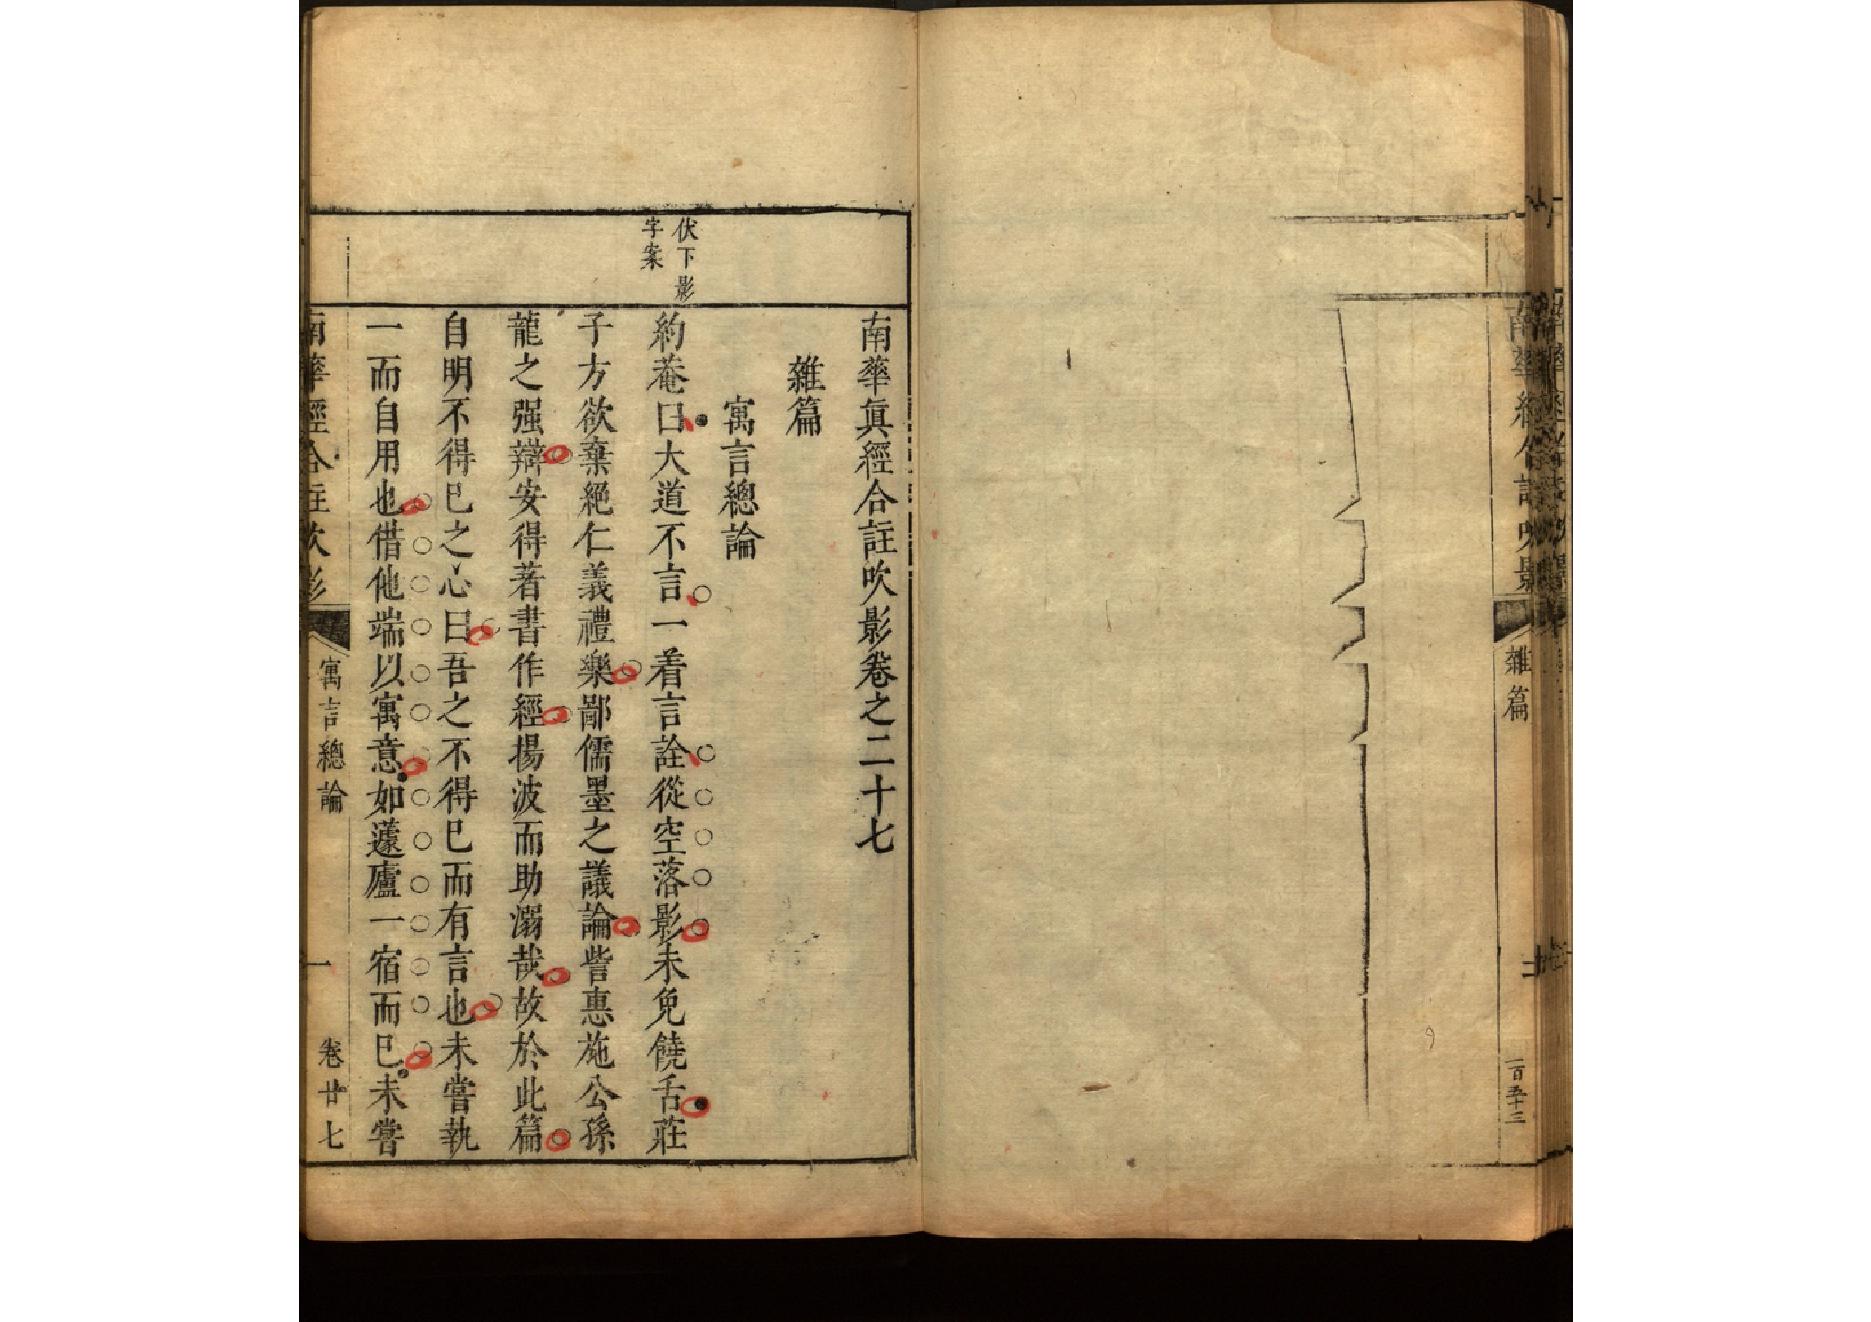 南華經合註吹影
雜篇
一百五十三
南華眞經合註吹影卷之二十七
雜篇
寓言總論
伏下影
字案
約菴曰大道不言一着言詮從空落影未免饒舌莊
子方欲棄絕仁義禮樂鄙儒墨之議論訾惠施公孫
龍之强辯安得著書作經揚波而助溺哉故於此篇
自明不得已之心曰吾之不得已而有言也未嘗執
一而自用也借他端以寓意如蘧廬一宿而已未嘗
南華經合註吹影
寓言總論
一
卷廿七